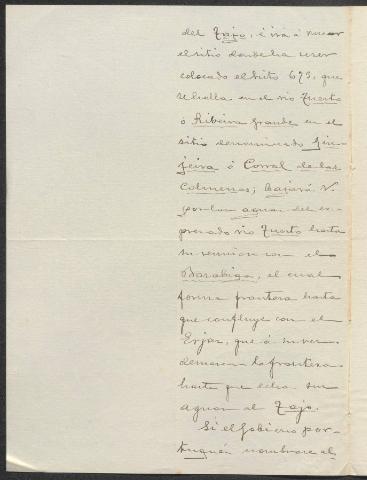 del Tajo, é irá á buscar
el sitio donde ha de ser
colocado el hito 673, que
se halla en el rio Tuerto
ó Ribeira grande en el
sitio denominado Gin-
jeira ó Corral de las
Colmenas; bajará V.
por las aguas del ex-
presado rio Tuerto hasta
su reunion con el
Barabiga, el cual
forma frontera hasta
que confluye con el
Erjas, que á su vez
demarca la frontera
hasta que echa sus
aguas al Tajo.
Si el Gobierno por-
tugués nombrase al